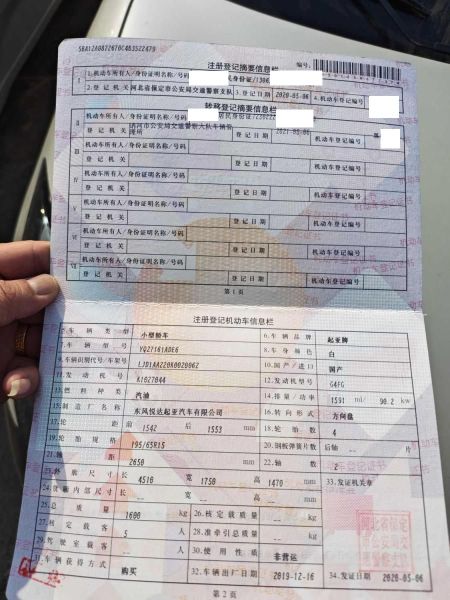 注册登记摘要信息栏 编号:
Ⅰ 1.机动车所有人/身份证明名称/号码
2.登记机关 河北省保定市公安局交通警察支队 3.登记日期 2020-05-06 4.机动车登记编号
转移登记摘要信息栏
Ⅱ 机动车所有人/身份证明名称/号码 居民身份证/
登记机关 登记日期 2021-05-06 机动车登记编号
Ⅲ 机动车所有人/身份证明名称/号码
登记机关 登记日期 机动车登记编号
Ⅳ 机动车所有人/身份证明名称/号码
登记机关 登记日期 机动车登记编号
Ⅴ 机动车所有人/身份证明名称/号码
登记机关 登记日期 机动车登记编号
Ⅵ 机动车所有人/身份证明名称/号码
登记机关 登记日期 机动车登记编号
Ⅶ 机动车所有人/身份证明名称/号码
登记机关 登记日期 机动车登记编号
第1页
注册登记机动车信息栏
5.车辆类型 小型轿车 6.车辆品牌 起亚牌
7.车辆型号 YQZ7161ADE6 8.车身颜色 白
9.车辆识别代号/车架号 LJD1AA220K0020062 10.国产/进口 国产
11.发动机号 K1627044 12.发动机型号 G4FG
13.燃料种类 汽油 14.排量/功率 1591 ml/ 90.2 kw
15.制造厂名称 东风悦达起亚汽车有限公司 16.转向形式 方向盘
17.轮距 前 1542 后 1553 mm 18.轮胎数 4
19.轮胎规格 195/65R15 20.钢板弹簧片数 后轴 -- 片
21.轴距 2650 mm 22.轴数 2
23.外廓尺寸 长 4510 宽 1750 高 1470 mm 33.发证机关章
24.货厢内部尺寸 长 -- 宽 -- 高 -- mm
25.总质量 1600 kg 26.核定载质量 -- kg
27.核定载客 5 人 28.准牵引总质量 -- kg
29.驾驶室载客 -- 人 30.使用性质 非营运
31.车辆获得方式 购买 32.车辆出厂日期 2019-12-16 34.发证日期 2020-05-06
第2页